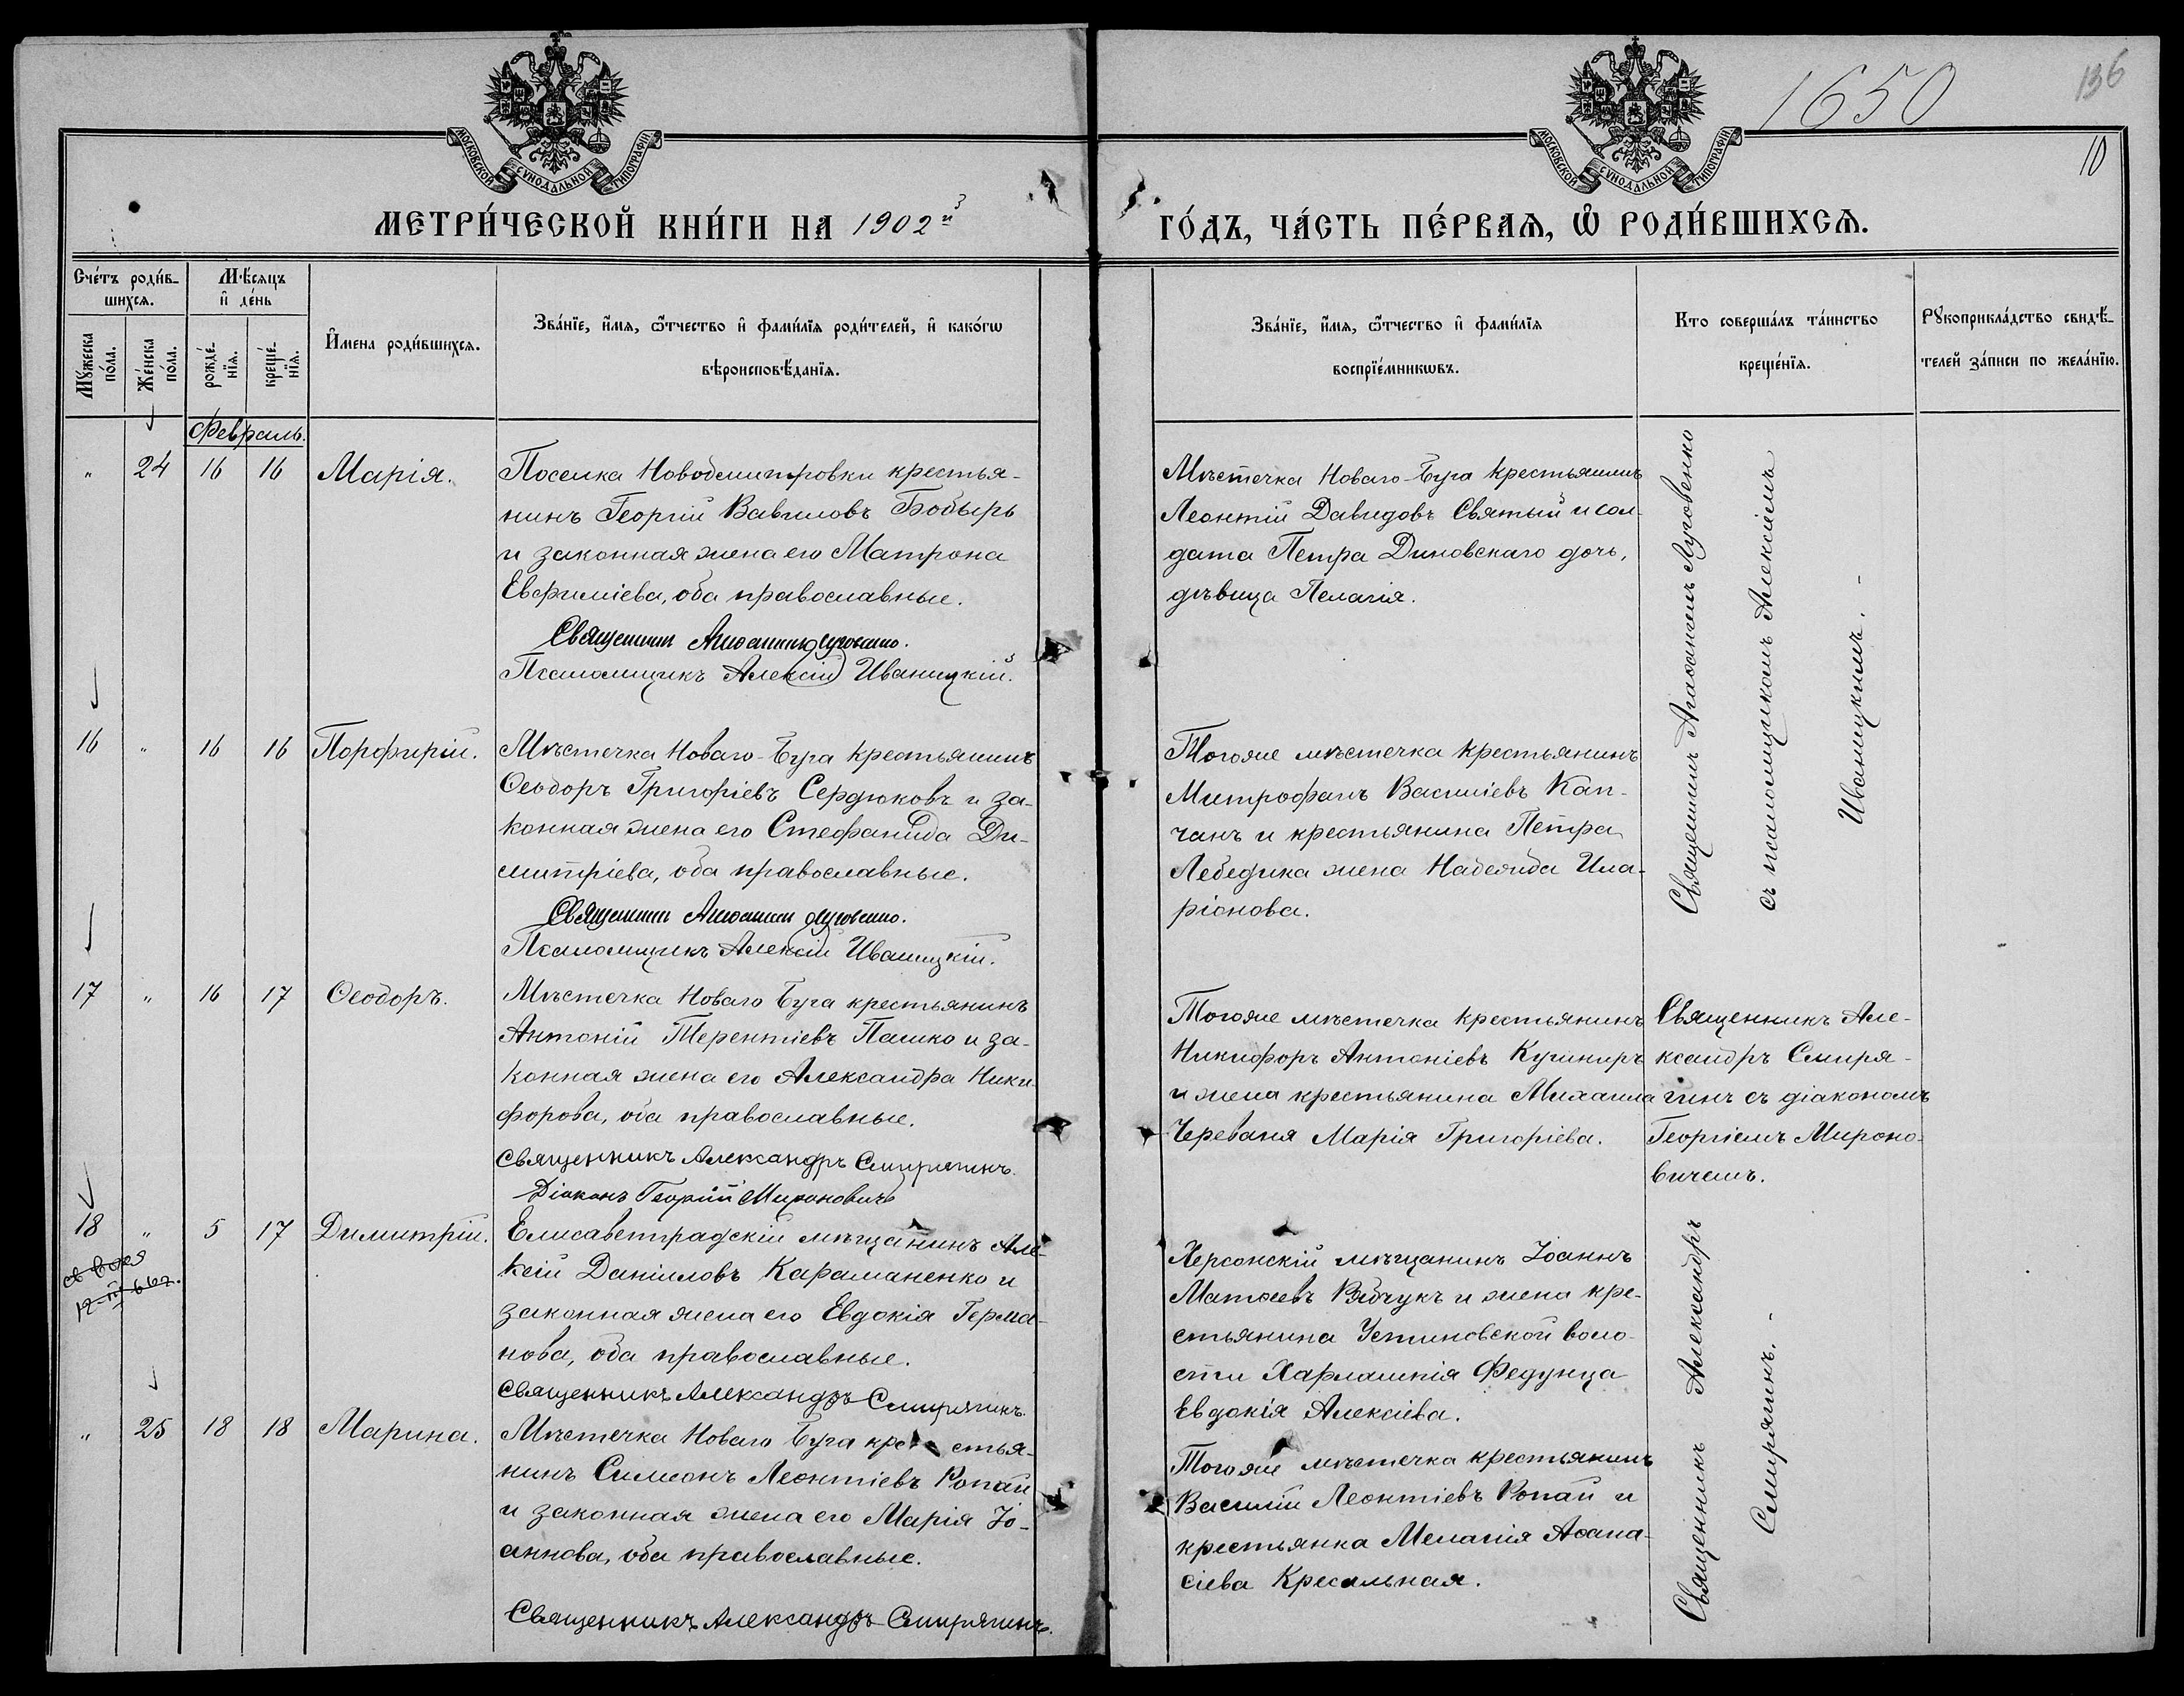 1650
136
10
МОСКОВСКОЙ СУНОДАЛЬНОЙ ТИПОГРАФІИ
МОСКОВСКОЙ СУНОДАЛЬНОЙ ТИПОГРАФІИ
МЕТРИ́ЧЕСКОЙ КНИ́ГИ НА 1902й
ГО́ДЪ, ЧА́СТЬ ПЕ́РВАѦ, Ѿ РОДИ́ВШИХСѦ.
Сче́тъ роди́в-
шихсѧ.
Мѣ́сѧцъ
и҆ де́нь
Мꙋ́жеска
по́ла.
Же́нска
по́ла.
рожде́-
нїѧ.
креще́-
нїѧ.
И҆мена роди́вшихсѧ.
Зва́нїе, и҆́мѧ, ѻ҆́тчество и҆ фами́лїѧ роди́телей, и҆ како́гѡ
вѣроисповѣ́данїѧ.
Зва́нїе, и҆́мѧ, ѻ҆́тчество и҆ фами́лїѧ
воспрїе́мникѡвъ.
Кто соверша́лъ та́инство
креще́нїѧ.
Рꙋкоприкла́дство свидѣ́-
телей за́писи по жела́нїю.
Февраль.
" 24 16 16 Марія.
Поселка Новодмитровки крестья-
нинъ Георгій Вавиловъ Бобырь
и законная жена его Матрона
Евфиміева, оба православные.
Священникъ Агаѳангелъ Луговенко.
Псаломщикъ Алексій Иваницкій.
Мѣстечка Новаго-Буга крестьянинъ
Леонтій Давидовъ Святый и сол-
дата Петра Диновскаго дочь,
дѣвица Пелагія.
Священникъ Агаѳангелъ Луговенко
съ псаломщикомъ Алексіемъ
Иваницкимъ.-
16 " 16 16 Порфирій.
Мѣстечка Новаго-Буга крестьянинъ
Ѳеодоръ Григоріевъ Сердюковъ и за-
конная жена его Стефанида Ди-
митріева, оба православные.
Священникъ Агаѳангелъ Луговенко.
Псаломщикъ Алексій Иваницкій.
Тогоже мѣстечка крестьянинъ
Митрофанъ Василіевъ Кап-
чанъ и крестьянина Петра
Лебедика жена Надежда Ила-
ріонова.
17 " 16 17 Ѳеодоръ.
Мѣстечка Новаго Буга крестьянинъ
Антоній Терентіевъ Пашко и за-
конная жена его Александра Ники-
форова, оба православные.
Священникъ Александръ Смирягинъ.
Діаконъ Георгій Мироновичъ
Тогоже мѣстечка крестьянинъ
Никифоръ Антоніевъ Кушниръ
и жена крестьянина Михаила
Череваня Марія Григоріева.
Священникъ Але-
ксандръ Смиря-
гинъ съ діакономъ
Георгіемъ Мироно-
вичемъ.
18 " 5 17 Димитрій.
Елисаветградскій мѣщанинъ Але-
ксій Даніиловъ Караманенко и
законная жена его Евдокія Герма-
нова, оба православные.
Священникъ Александръ Смирягинъ.
Херсонскій мѣщанинъ Іоаннъ
Матѳеевъ Рябчукъ и жена кре-
стьянина Устиновской воло-
сти Харлампія Федунца
Евдокія Алексіева.
Священникъ Александръ
Смирягинъ.-
" 25 18 18 Марина.
Мѣстечка Новаго Буга кре стья-
нинъ Симеонъ Леонтіевъ Копай
и законная жена его Марія Іо-
аннова, оба православные.
Священникъ Александръ Смирягинъ.
Тогоже мѣстечка крестьянинъ
Василій Леонтіевъ Копай и
крестьянка Меланія Аѳана-
сіева Кресальная.